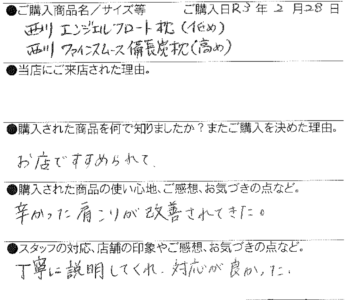 ●ご購入商品名／サイズ等 ご購入日R3年2月28日
西川 エンジェルフロート枕(低め)
西川 ファインスムース備長炭枕(高め)
●当店にご来店された理由。
●購入された商品を何で知りましたか？またご購入を決めた理由。
お店ですすめられて、
●購入された商品の使い心地、ご感想、お気づきの点など。
辛かった肩こりが改善されてきた。
●スタッフの対応、店舗の印象やご感想、お気づきの点など。
丁寧に説明してくれ、対応が良かった。